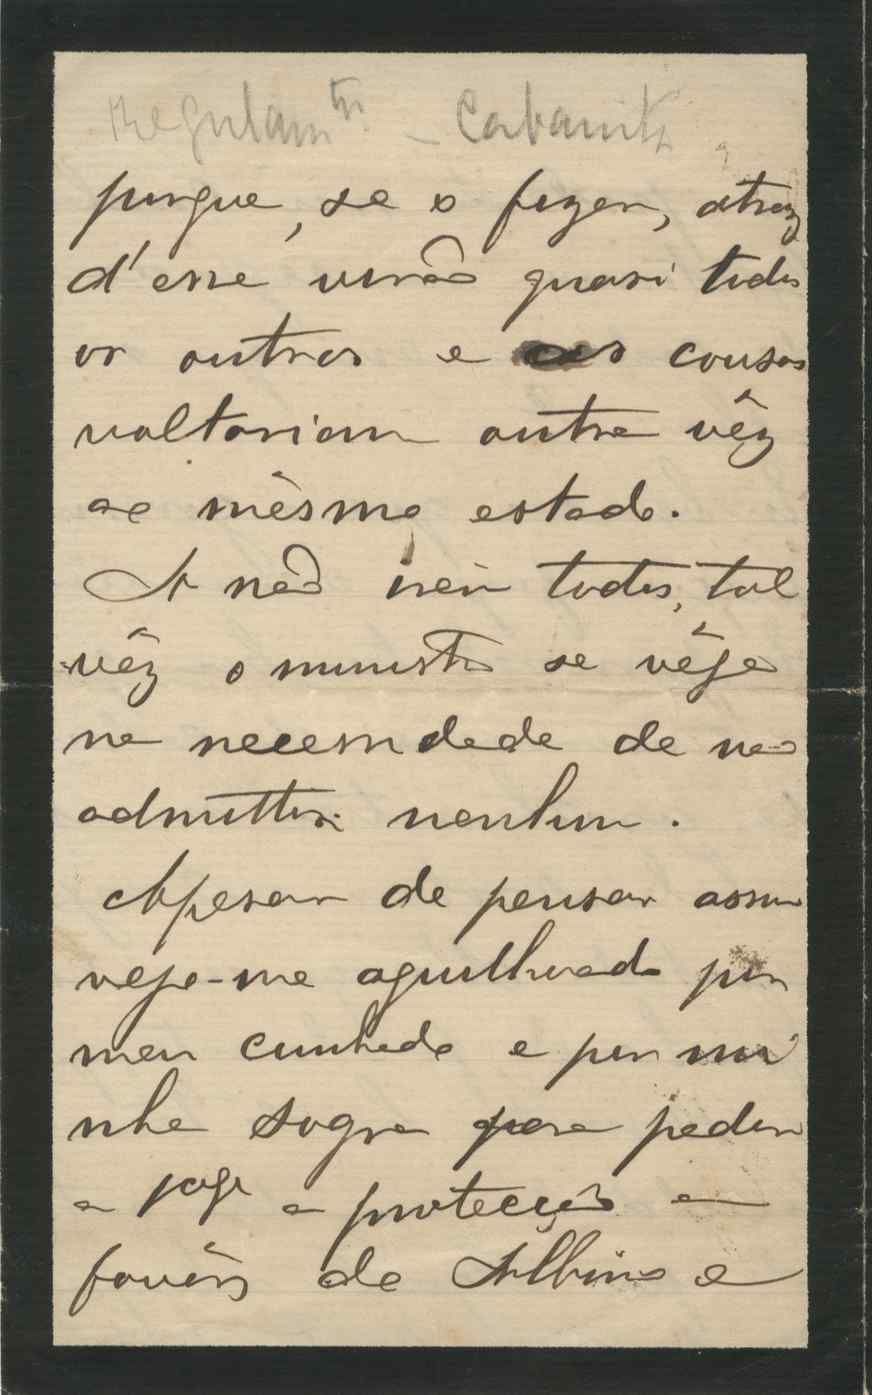 porque, se o fizer, atraz
d'esse virão quasi todos
os outros e as cousas
voltariam outra vêz
ao mêsmo estado.
A não irem todos, tal
vêz o ministro se vêja
na necessidade de nao
admittir nenhum.
Apesar de pensar assim
vejo-me aguilhoado por
meu cunhado e por mi
nha sogra para pedir
a a protecção a
favôr de Albino e